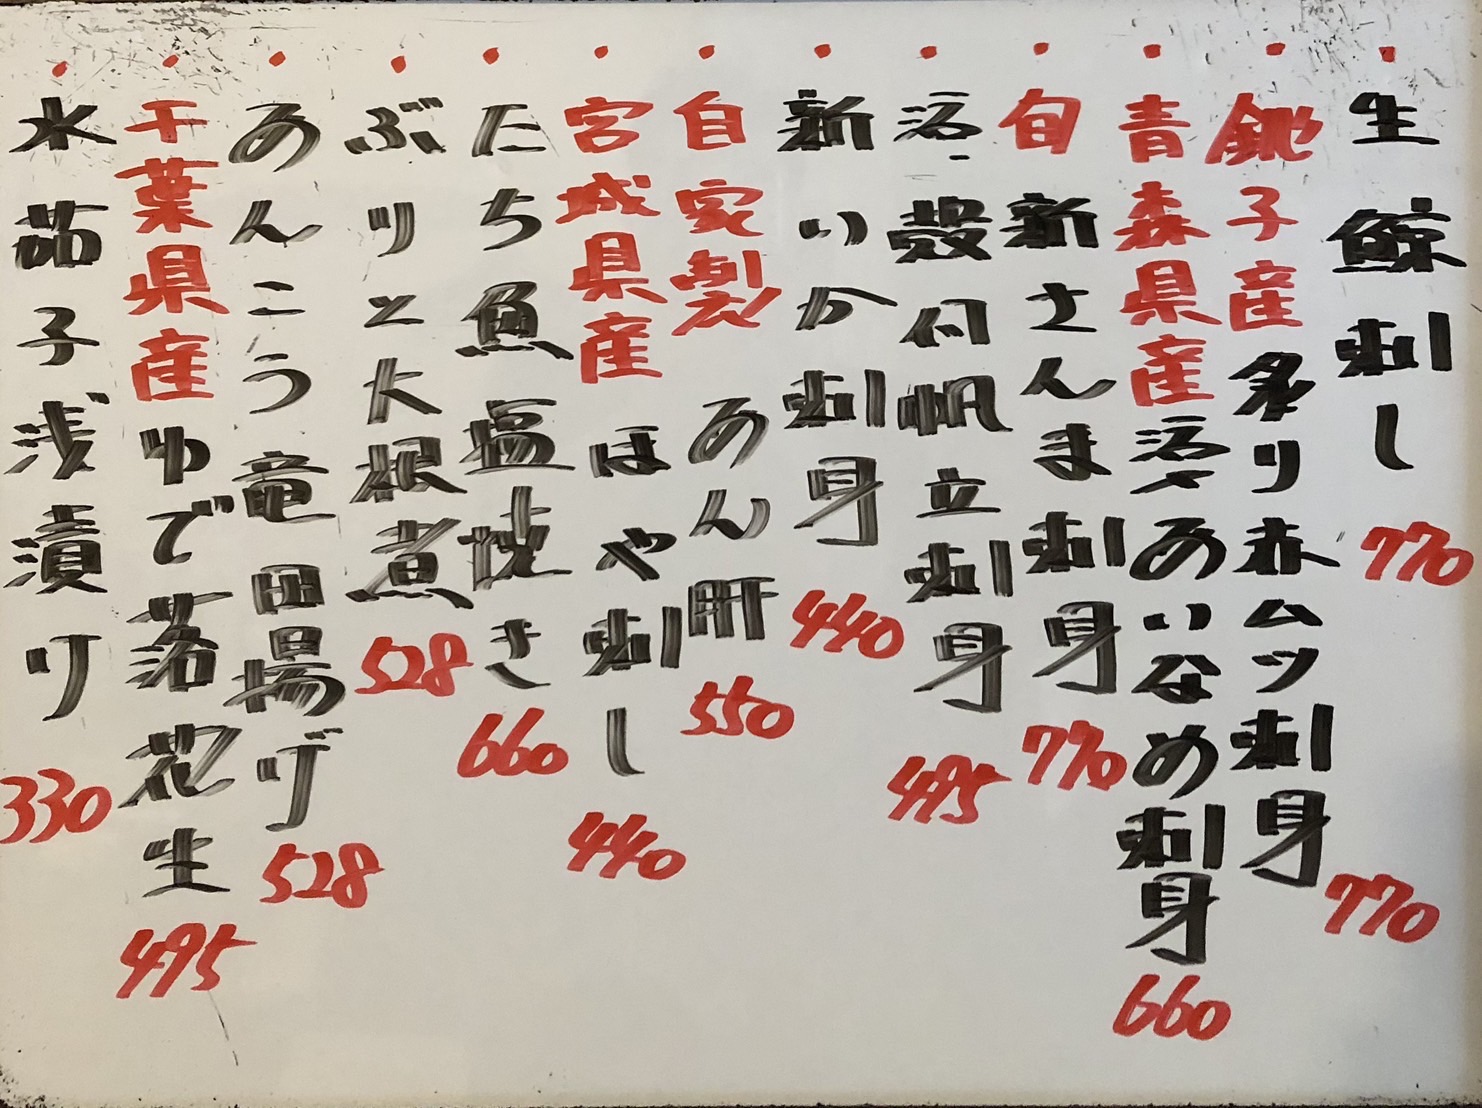 ・生鯨刺し 770
・銚子産炙り赤ムツ刺身 770
・青森県産活〆あいなめ刺身 660
・旬 新さんま刺身 770
・活殻付帆立刺身 495
・新いか刺身 440
・自家製 あん肝 550
・宮城県産 ほや刺し 440
・たち魚塩焼き 660
・ぶりと大根煮 528
・あんこう竜田揚げ 528
・千葉県産ゆで落花生 495
・水茄子浅漬け 330